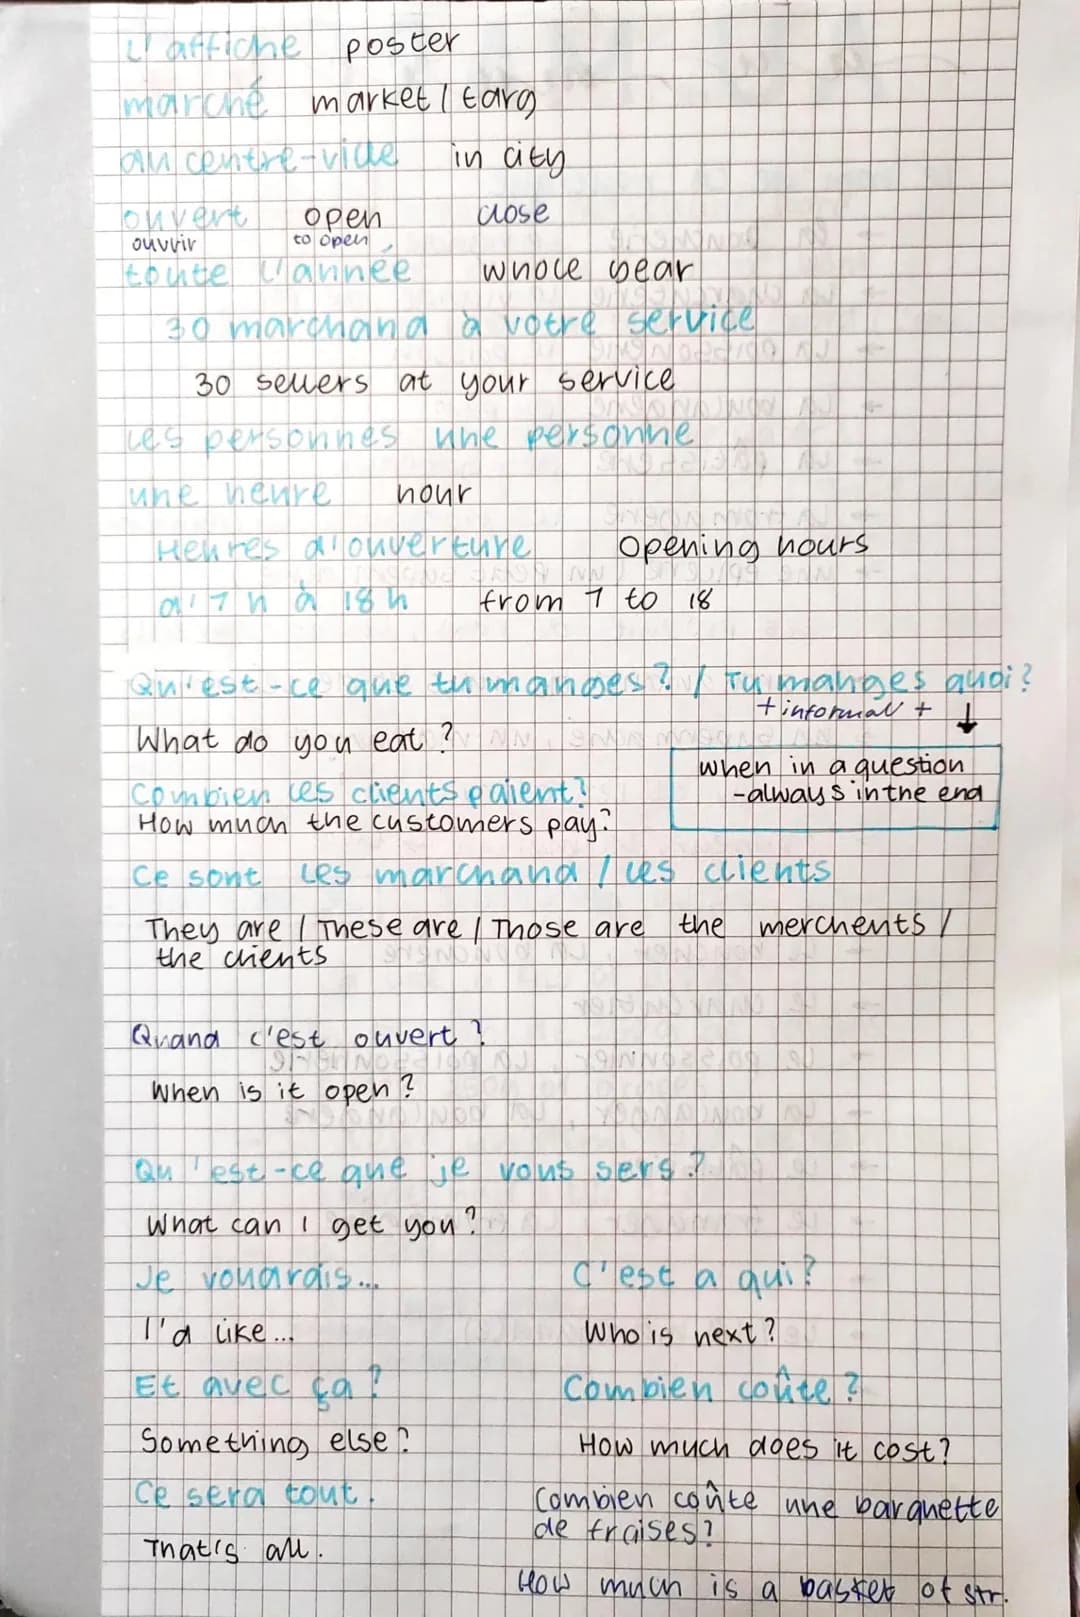 L'affiche poster
marché market / targ
au centre-ville in city
ouvert open close
ouvrir to open
toute l'année whole year
30 marchand à votre service
30 sellers at your service
les personnes une personne
une heure hour
Heures d'ouverture Opening hours
d'7h à 18h from 7 to 18
Qu'est-ce que tu manges? / Tu manges quoi?
+ informal +
What do you eat?
when in a question
-always in the end
Combien les clients paient?
How much the customers pay?
Ce sont les marchand / les clients
They are / These are / Those are the merchents /
the clients
Quand c'est ouvert?
When is it open?
Qu'est-ce que je vous sers?
What can I get you?
Je voudrais... C'est a qui?
I'd like... Who is next?
Et avec ça? Combien coûte?
Something else? How much does it cost?
Ce sera tout. Combien coûte une barquette
de fraises?
That's all.
How much is a basket of str.